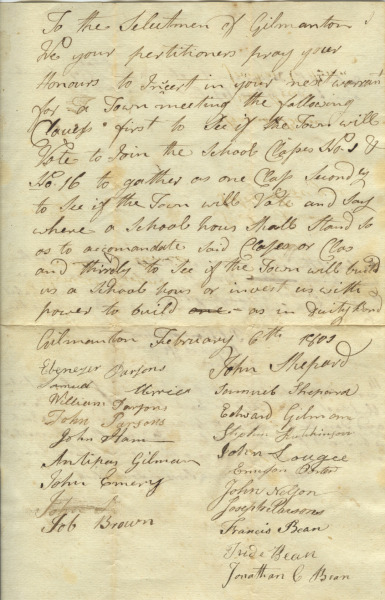 To the Selectmen of Gilmanton
We your pertitioners pray your
Honours to Incert in your next
for a Town meeting the following
Clauess first to See if the Town will
Vote to Join the School Classes No. &
No. 16 to gather as one Class Secondly
to See if the Town will Vote and Say
where a School hous Shall Stand So
as to accomandate Said Classes or Clas
and thirdly to See if the Town will build
us a School hous or invest us with
power to build one as in Duty bond
Gilmanton Februeary 6th
Ebenezer Parsons
Samuel Merrick
William Parsons
John Parsons
John Ham
Antipas Gilman
John Emery
Job Brown
John Shepard
Samuel Shepard
Edward Gilman
Hutchinson
John Lougee
John Nelson
Joseph Parsons
Francis Bean
Bean
Jonathan C Bean